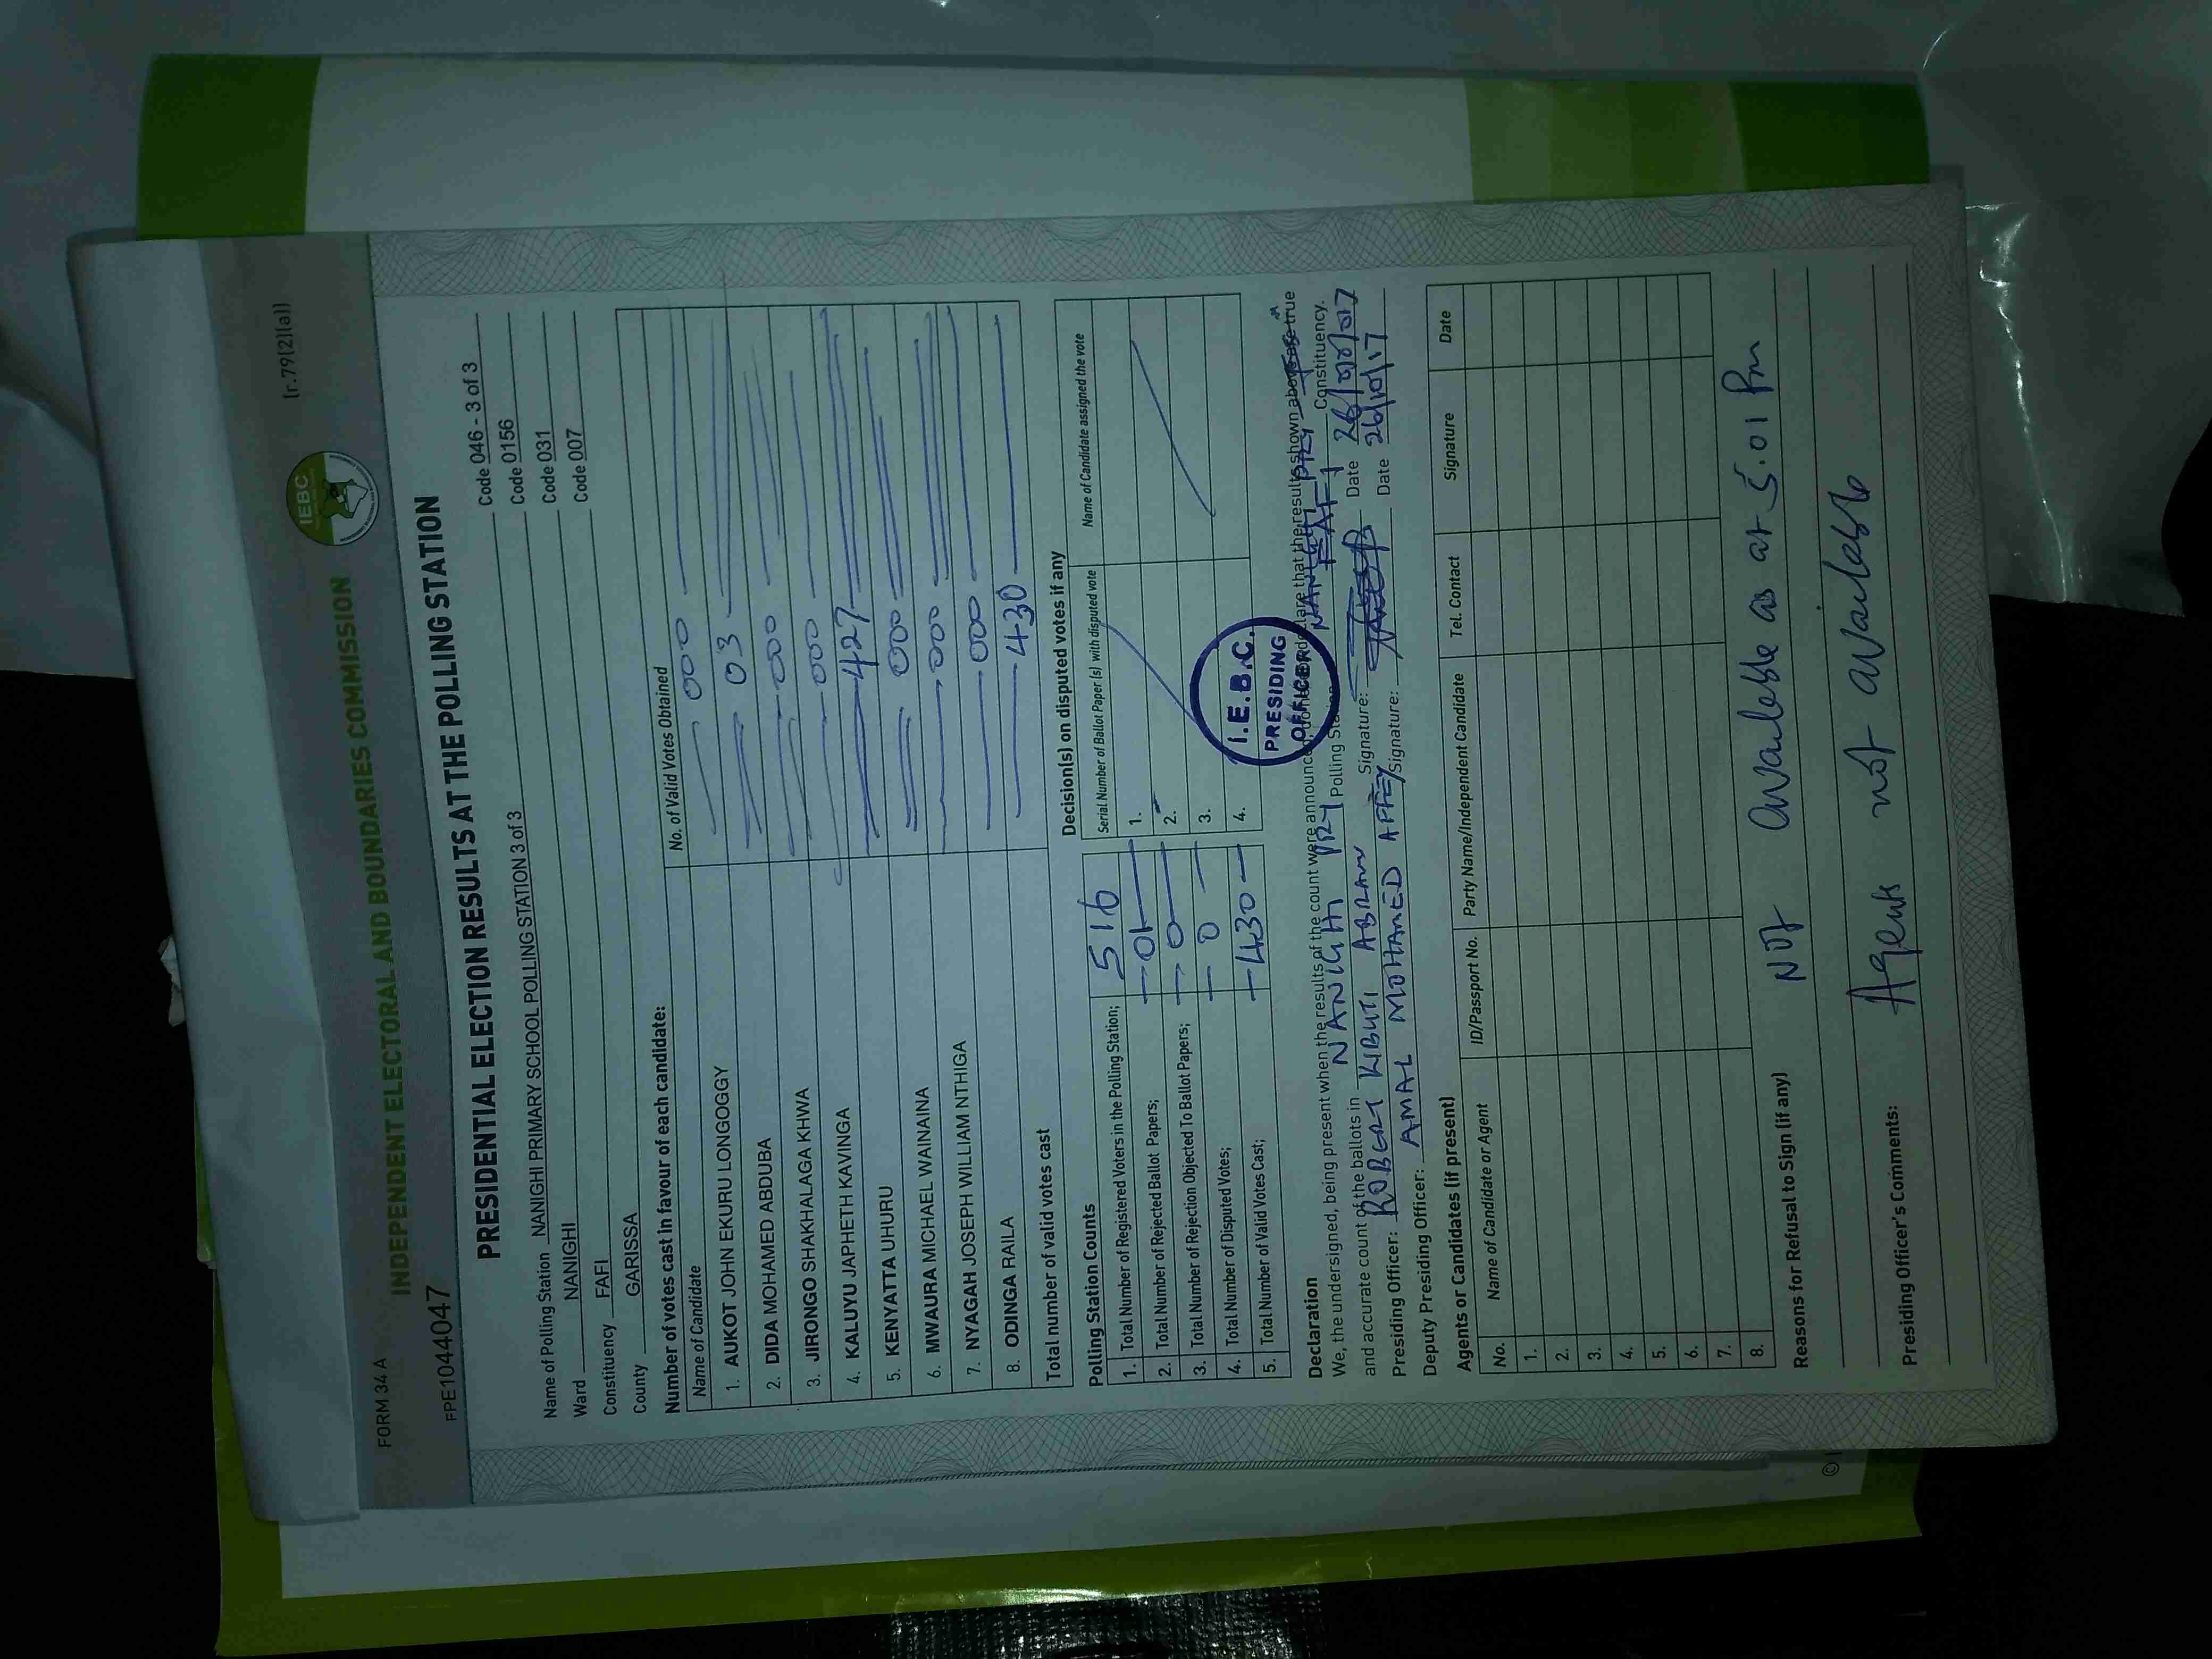 FORM 34 A
(r.79(2)(a))
INDEPENDENT ELECTORAL AND BOUNDARIES COMMISSION
IEBC
FPE1044047
PRESIDENTIAL ELECTION RESULTS AT THE POLLING STATION
Name of Polling Station NANIGHI PRIMARY SCHOOL POLLING STATION 3 of 3 Code 046 - 3 of 3
Ward NANIGHI Code 0156
Constituency FAFI Code 031
County GARISSA Code 007
Number of votes cast in favour of each candidate:
Name of Candidate No. of Valid Votes Obtained
1. AUKOT JOHN EKURU LONGOGGY 000
2. DIDA MOHAMED ABDUBA 03
3. JIRONGO SHAKHALAGA KHWA 000
4. KALUYU JAPHETH KAVINGA 000
5. KENYATTA UHURU 427
6. MWAURA MICHAEL WAINAINA 000
7. NYAGAH JOSEPH WILLIAM NTHIGA 000
8. ODINGA RAILA 000
Total number of valid votes cast 430
Polling Station Counts
1. Total Number of Registered Voters in the Polling Station; 516
2. Total Number of Rejected Ballot Papers; 01
3. Total Number of Rejection Objected To Ballot Papers; 0
4. Total Number of Disputed Votes; 0
5. Total Number of Valid Votes Cast; 430
Decision(s) on disputed votes if any
Serial Number of Ballot Paper (s) with disputed vote Name of Candidate assigned the vote
1.
2.
3.
4.
I.E.B.C.
PRESIDING
OFFICER
Declaration
We, the undersigned, being present when the results of the count were announced, do hereby declare that the results shown above are true
and accurate count of the ballots in NANIGHI PRY Polling Station FAFI Constituency.
Presiding Officer: ROBERT KIBUTI ABRAM Signature: Date 26/
Deputy Presiding Officer: AMAL MOHAMED AFFEY Signature: Date 26/10/17
Agents or Candidates (if present)
No. Name of Candidate or Agent ID/Passport No. Party Name/Independent Candidate Tel. Contact Signature Date
1.
2.
3.
4.
5.
6.
7.
8.
Reasons for Refusal to Sign (if any) Not available as at 5.01 Pm
Presiding Officer's Comments: Agents not available